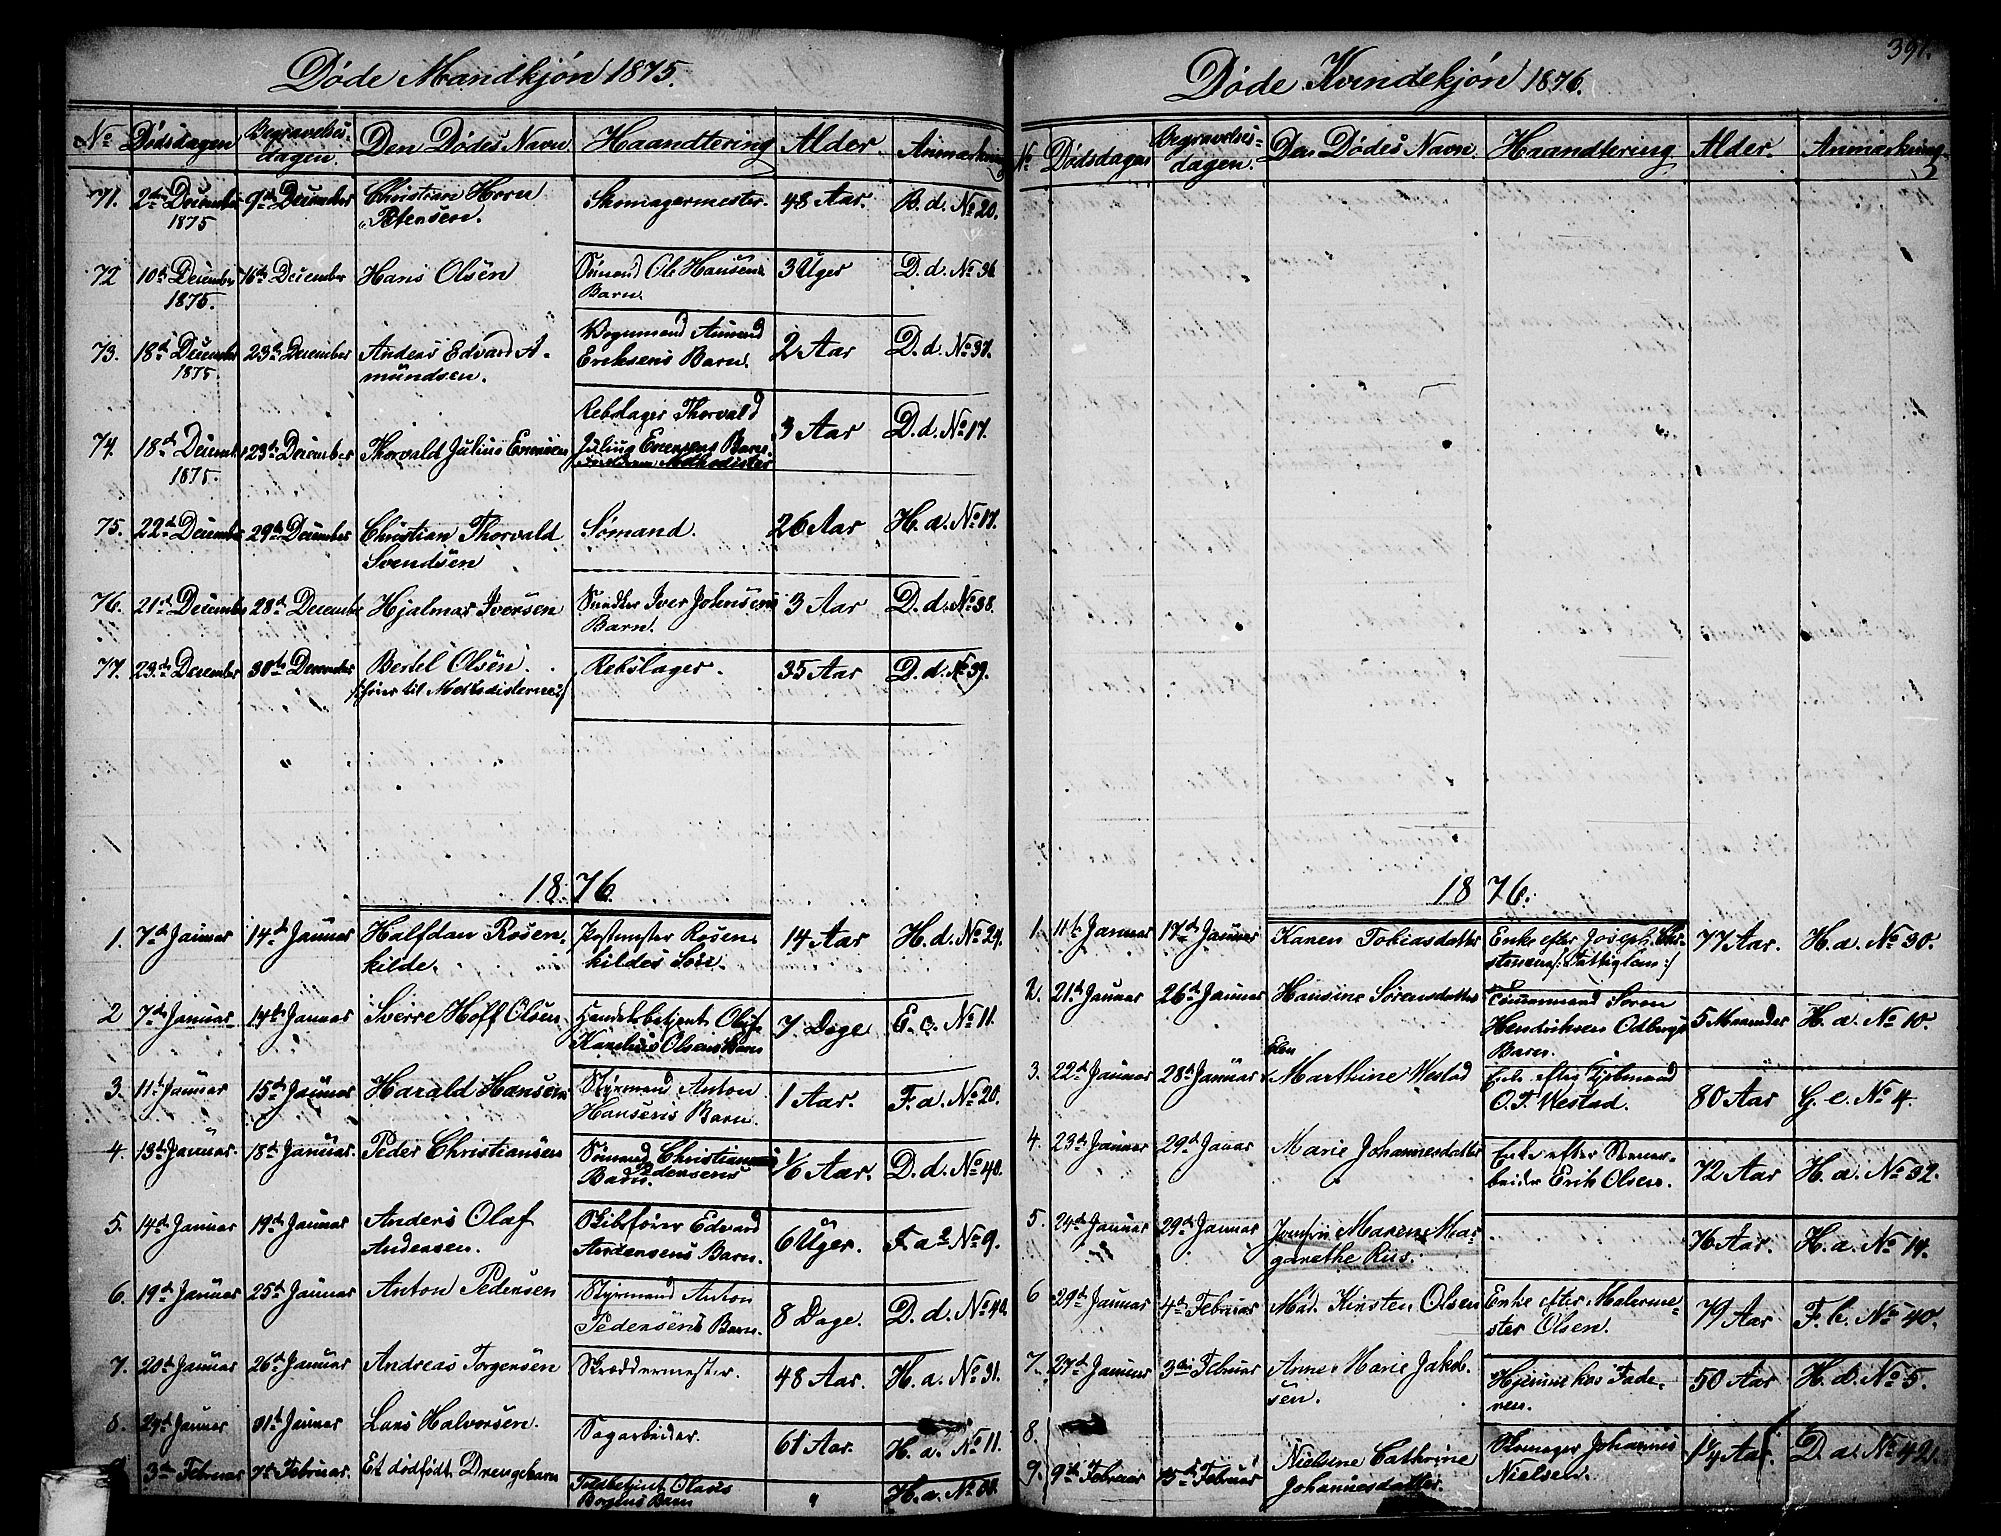 Døde Mandkjøn 1875.
No Dødsdagen Begravelses-dagen. Den Dødes Navn Haandtering Alder. Anmærkning
71. 2den December 1875 9de December Christian Horn Petersen. Skomagermester. 48 Aar. B. d. No 20.
72 10de December 1875. 16de December Hans Olsen Sømand Ole Hansens Barn. 3 Uger D. d. No 36
73. 18de December 1875. 23de December Anders Edvard Amundsen. Amund Eriksens Barn. 2 Aar D. d. No 37.
74. 18de Decemb 1875. 23de December Thorvald Julius Evensen Rebslager Thorvald Julius Evensens Barn. Methodister 3 Aar D. d. No 17.
75. 22de December 29de December Christian Thorvald Svendsen Sømand. 26 Aar H. a. No 17.
76. 21de December 28de December Hjalmar Iversen Snedker Iver Johnsens Barn. 3 Aar D. d. No 38.
77. 23de December 30te December Bertel Olsen. /: hører til Methodisterne :/ Rebslager. 35 Aar D. d. No 39.
"
1876.
1. 7de Januar 14de Januar Halfdan Rosenkilde. Postmester Rosenkildes Søn. 14 Aar H. d. No 24.
2 7de Januar 14de Januar Sverre Hoff Olsen Handelsbetjent Oluf Karelius Olsens Barn 7 Dage E. c. No 11.
3. 11te Januar 15de Januar Harald Hansen Styrmand Anton Hansens Barn. 1 Aar. F. a. No 20.
4. 13de Januar. 18de Januar. Peder Christiansen Sømand Christian Pedersens Barn. 1/6 Aar. D. d. No 40.
5. 14de Januar 19de Januar Anders Olaf Andersen. Skibsfører Edvard Andersens Barn. 6 Uger. F. a 2 No 9.
6. 19de Januar 25de Januar Anton Pedersen Styrmand Anton Pedersens Barn. 8 Dage. D. d. No 40.
7. 20de Januar 26de Januar Andreas Torgersen Skræddermester. 48 Aar. H. a. No 31.
8. 24de Januar 31te Januar Lars Halvorsen. Sagarbeider. 61 Aar. H. a. No 11.
3de Februar 7de Februar. Et dødfødt Drengebarn Toldbetjent Barn " H. a. No
391.
Døde Kvindekjøn 1876.
No Dødsdagen Begravelses-dagen. Den Dødes Navn Haandtering Alder. Anmærkning
1876.
1. 11te Januar 17de Januar Karen Tobiasdatter Enke efter Joseph Christensen /: Fattiglem :/ 77 Aar. H. a. No 30.
2. 21de Januar 26de Januar Hansine Sørensdatter Tømmermand Søren Hendriksen Odbergs Barn. 5 Maaneder H. a. No 10.
3. 22de Januar 28de Januar Elen Marthine Westad Enke efter O. T. Westad. 80 Aar G. e. No 4.
4. 23de Januar 29de Januar Marie Johannesdatter Enke efter Erik Olsen. 72 Aar H. a. No 32.
5. 24de Januar 29de Januar Jomfru Maren Margarethe Riis. 76 Aar. H. a. No 14.
6 29de Januar 4de Februar Mad. Kirsten Olsen Enke efter Malermester Olsen. 79 Aar F. b. No 40.
7. 27de Januar 3die Februar Anne Marie Jakobsen. Hjemme hos Faderen. 50 Aar H. d. No 5.
8.
9. 9de Februar 15de Februar Nielsine Cathrine Johannesdatter. Skomager Johannes Nielsen. 1/4 Aar D. a. No 42.